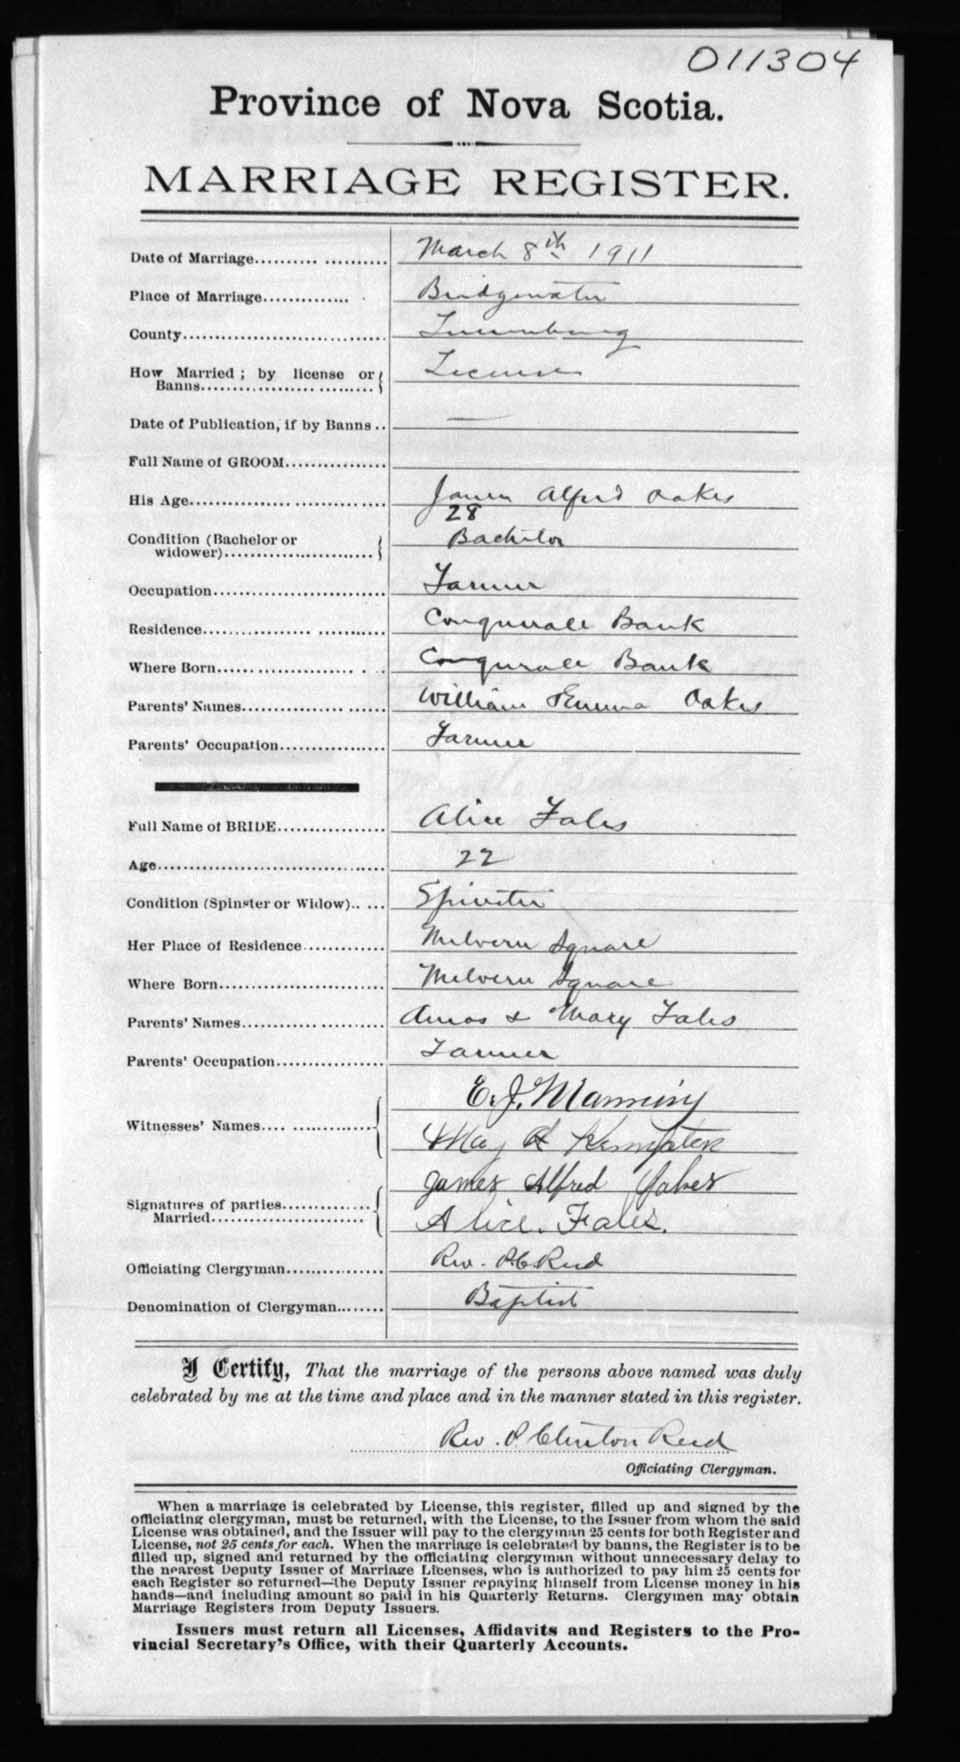 011304
Province of Nova Scotia.
MARRIAGE REGISTER.
Date of Marriage.......... ........... March 8th 1911
Place of Marriage.............. . Bridgewater
County............................... Lunenburg
How Married ; by license or
Banns.............................. License
Date of Publication, if by Banns .. —
Full Name of GROOM................
His Age.............................. James Alfred Oakes
28
Condition (Bachelor or
widower)......................... Bachelor
Occupation........................... Farmer
Residence................ ........... Conquerall Bank
Where Born....................... . .. Conquerall Bank
Parents' Names................ ...... William & Emma Oakes
Parents' Occupation................. Farmer
Full Name of BRIDE................. Alice Fales
Age.................................... 22
Condition (Spinster or Widow).. ... Spinster
Her Place of Residence............. Melvern Square
Where Born.......................... Melvern Square
Parents' Names...................... Amos & Mary Fales
Parents' Occupation................. Farmer
E. J. Manning
Witnesses' Names.... ..............
May Kempton
James Alfred Oakes
Signatures of parties..............
Married........................ Alice. Fales.
Officiating Clergyman............... Rev. P C Reed
Denomination of Clergyman........ Baptist
I Certify, That the marriage of the persons above named was duly
celebrated by me at the time and place and in the manner stated in this register.
Rev. P Clinton Reed
Officiating Clergyman.
When a marriage is celebrated by License, this register, filled up and signed by the
officiating clergyman, must be returned, with the License, to the Issuer from whom the said
License was obtained, and the Issuer will pay to the clergyman 25 cents for both Register and
License, not 25 cents for each. When the marriage is celebrated by banns, the Register is to be
filled up, signed and returned by the officiating clergyman without unnecessary delay to
the nearest Deputy Issuer of Marriage Licenses, who is authorized to pay him 25 cents for
each Register so returned—the Deputy Issuer repaying himself from License money in his
hands—and including amount so paid in his Quarterly Returns. Clergymen may obtain
Marriage Registers from Deputy Issuers.
Issuers must return all Licenses, Affidavits and Registers to the Pro-
vincial Secretary's Office, with their Quarterly Accounts.